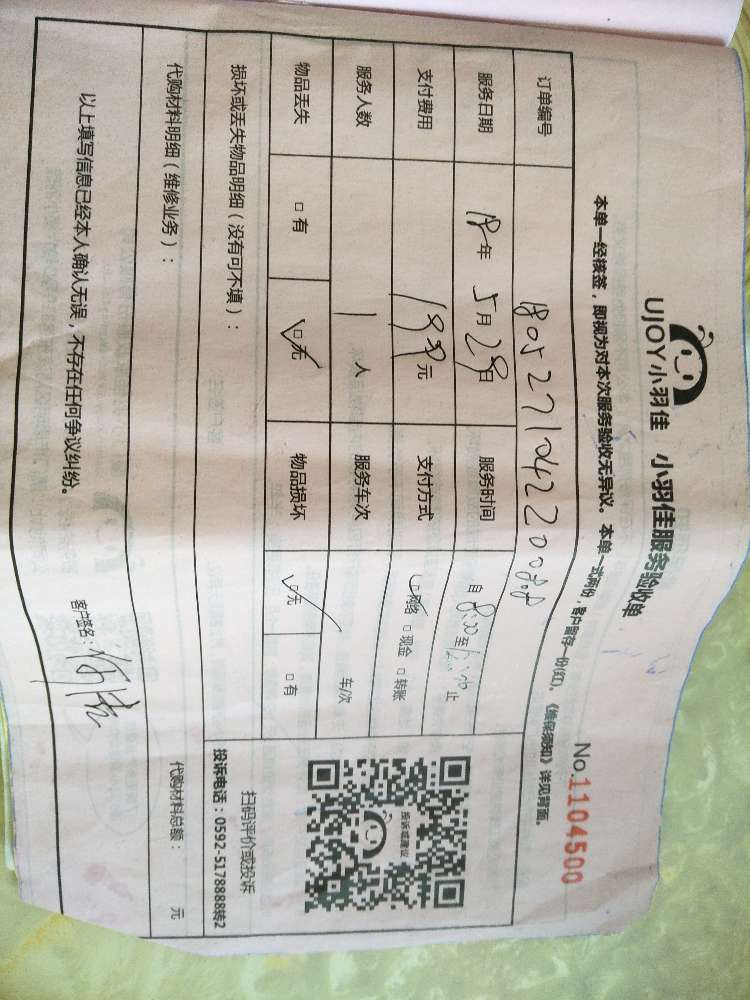 UJOY小羽佳 小羽佳服务验收单
No.1104500
本单一经核签，即视为对本次服务验收无异议。本单一式两份，客户留存一份(红)。《维保须知》详见背面。
订单编号
服务日期 18年 5月 29日 服务时间 自 8:00 至 止
支付费用 199元 支付方式 网络 □ 现金 □ 转账
服务人数 1 人 服务车次 车/次
物品丢失 □ 有 □ 无 物品损坏 □ 无 □ 有
损坏或丢失物品明细（没有可不填）：
投诉建议
扫码评价或投诉
投诉电话：0592-5178888转2
代购材料明细（维修业务）：
代购材料总额： 元
以上填写信息已经本人确认无误，不存在任何争议纠纷。
客户签名：